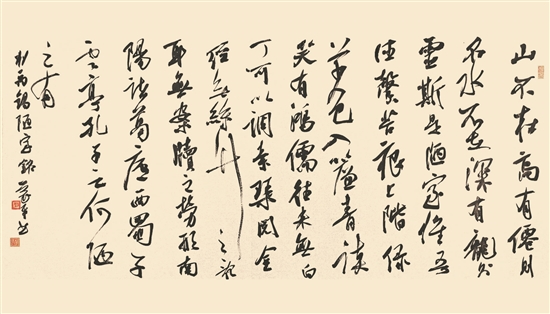 山不在高有僊則
名水不在深有龍則
靈斯是陋室惟吾
德馨苔痕上階綠
草色入簾青談
笑有鴻儒往來無白
丁可以調素琴閱金
經無絲竹之亂
耳無案牘之勞形南
陽諸葛廬西蜀子
雲亭孔子云何陋
之有
劉禹錫陋室銘